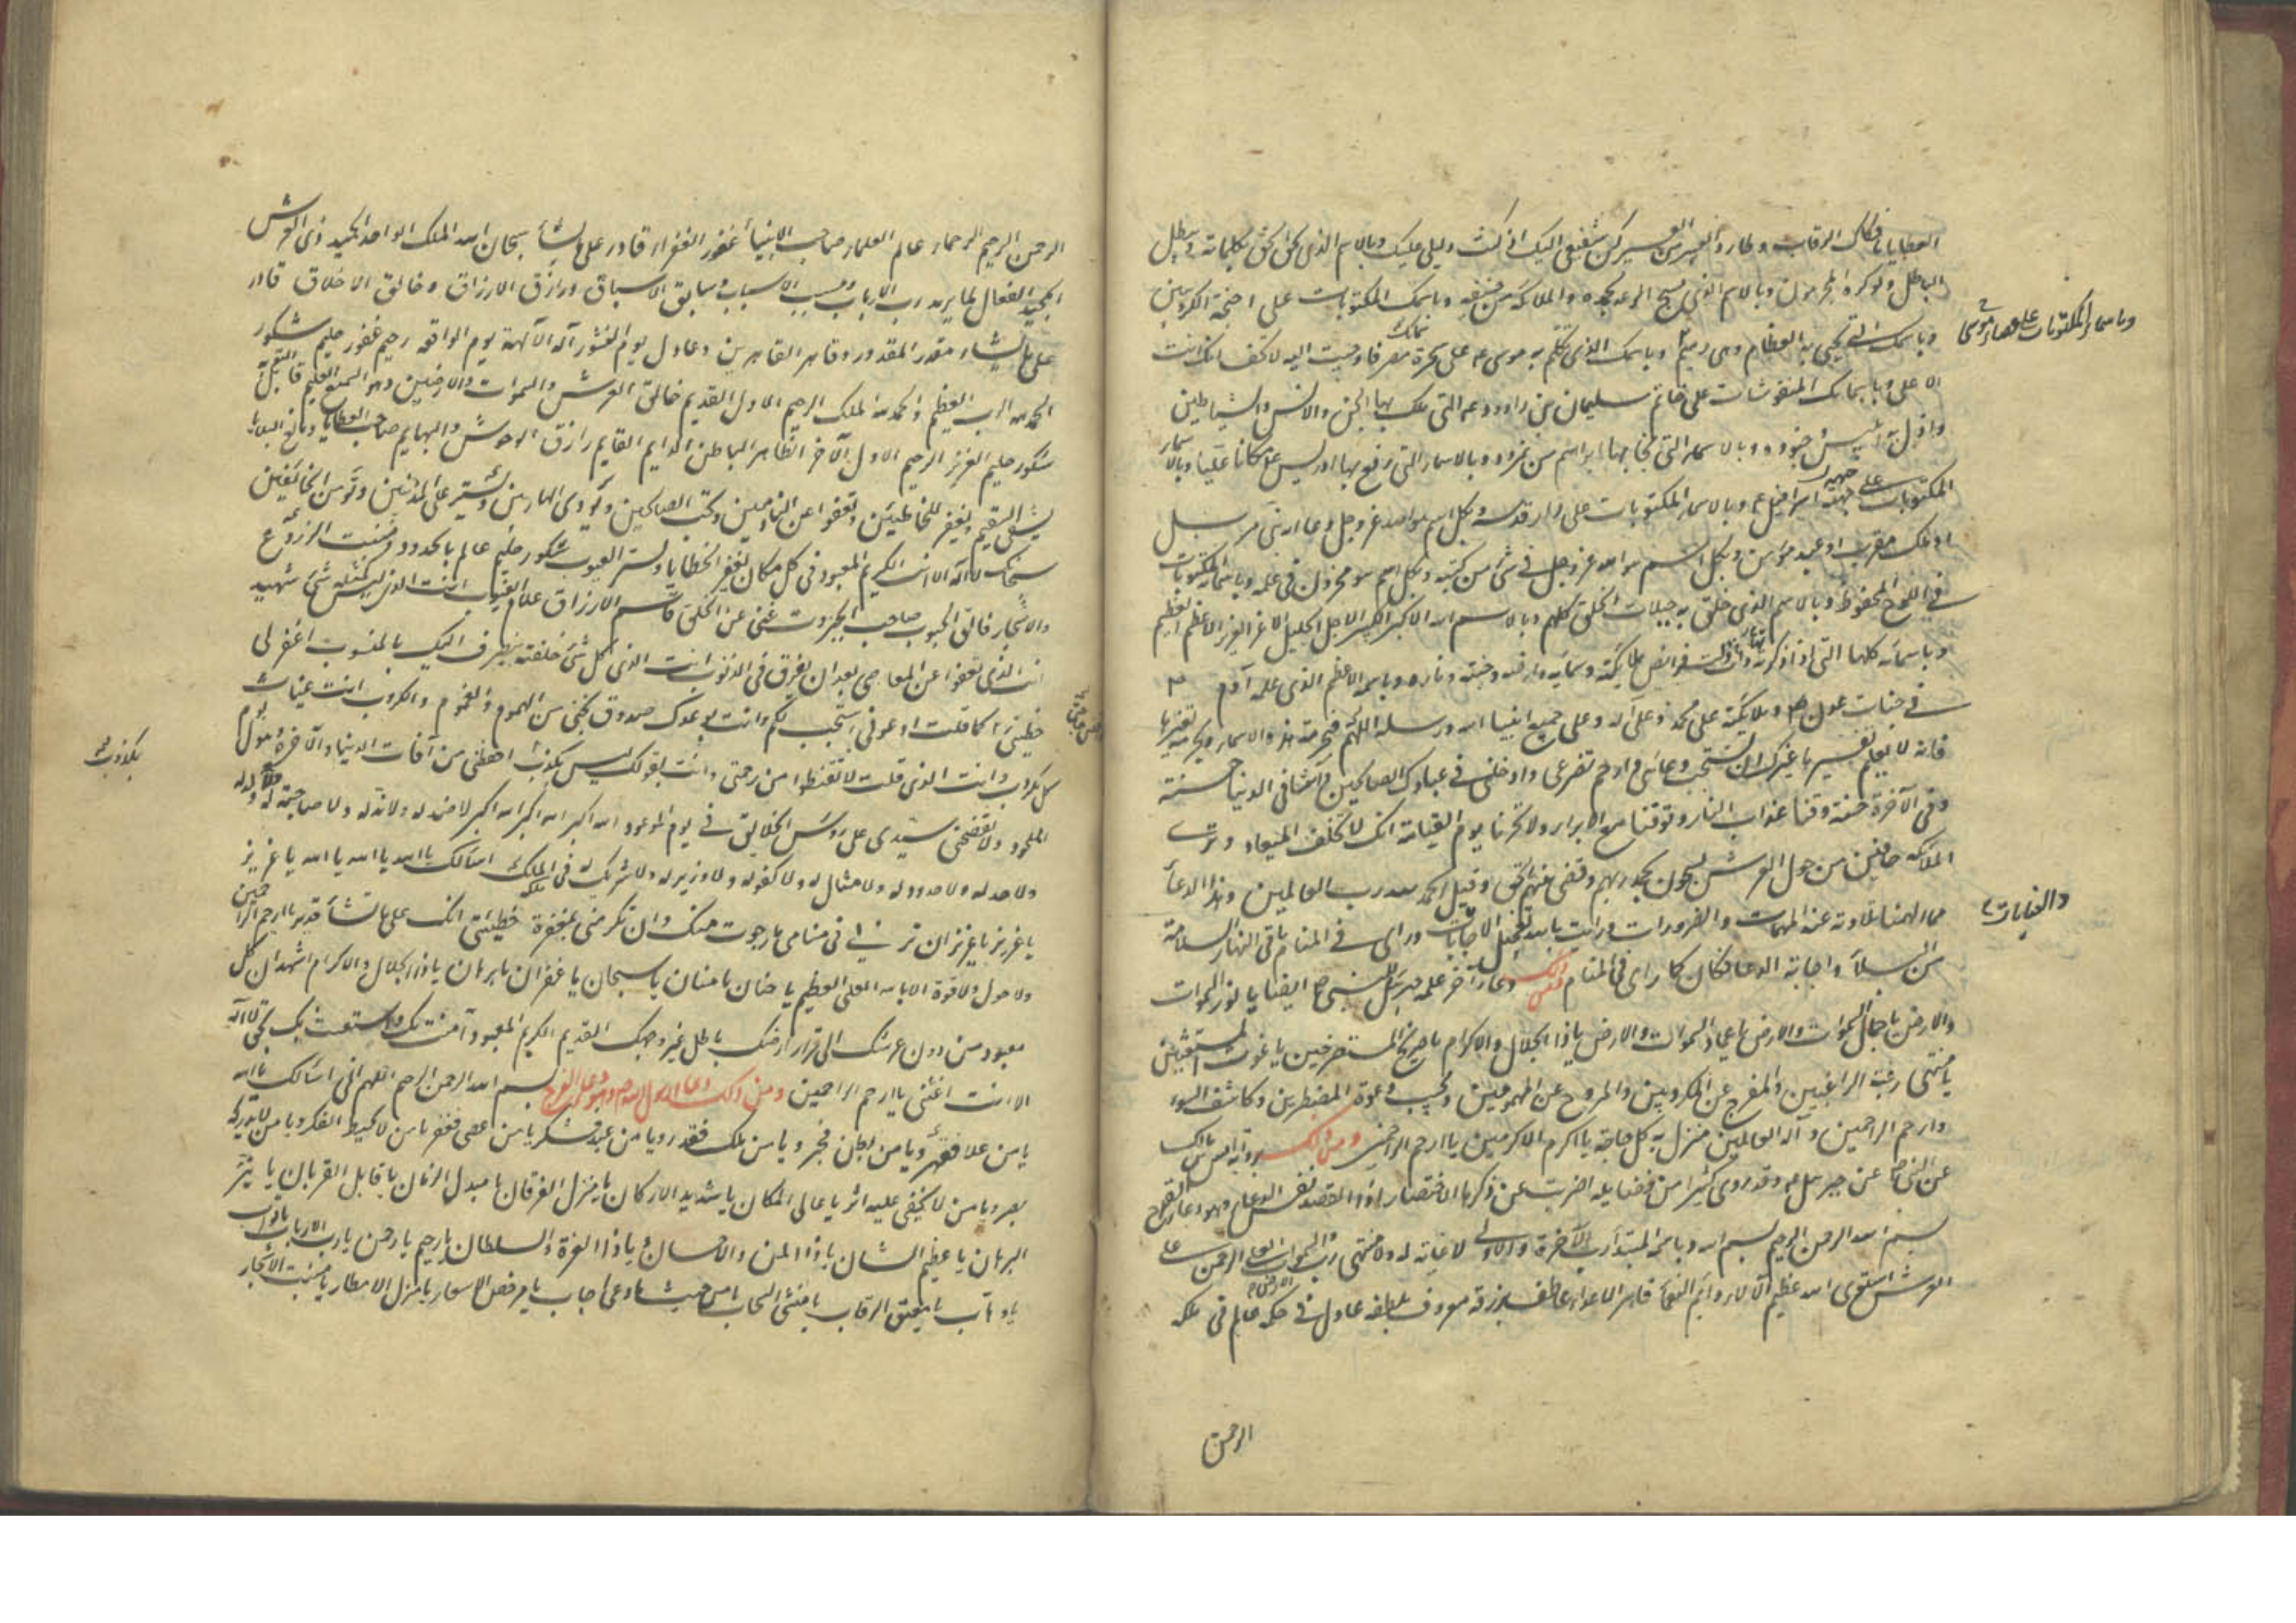 العطايا يا فكاك الرقاب وطارد العسر من العسير كن شفيعي اليك اذ كنت دليلي عليك وبالاسم الذي يحق الحق بكلماته ويبطل
الباطل ولو كره المجرمون وبالاسم الذي يسبح الرعد بحمده والملائكة من خيفته وباسمك المكتوبات على اجنحة الكروبين
وباسمائك المكتوبات على عصا موسى
وباسمك التي تحيي به العظام وهي رميم وباسمك الذي تكلم به موسى ع على سحرة مصر فاوحيت اليه لا تخف انك انت
الاعلى وباسمائك المنقوشات على خاتم سليمان بن داود ع التي ملك بها الجن والانس والشياطين
واذل به ابليس وجنوده وبالاسماء التي نجا بها ابراهيم من نمرود وبالاسماء التي رفع بها ادريس مكانا عليا وبالاسماء
المكتوبات على جبهة اسرافيل ع وبالاسماء المكتوبات على دار قدسه وبكل اسم هو لله عز وجل دعا به نبي مرسل
او ملك مقرب او عبد مؤمن وبكل اسم هو لله عز وجل في شئ من كتبه وبكل اسم هو مخزون في علمه وباسمائه المكتوبات
في اللوح المحفوظ وبالاسم الذي خلق به جبلات الخلق كلهم وبالاسم الله الاكبر الكبير الاجل الجليل الاعز العزيز الاعظم العظيم
وباسمائه كلها التي اذا ذكرت ذلت فرائص ملائكته وسمائه وارضه وجنته وناره وباسمه الاعظم الذي علمه آدم
في جنات عدن وملائكته على محمد وعلى آله وعلى جميع انبياء الله ورسله اللهم فبحرمة هذه الاسماء وبحرمة تفسيرها
فانه لا يعلم تفسيرها غيرك ان تستجيب دعائي وارحم تضرعي وادخلني في عبادك الصالحين وآتنا في الدنيا حسنة
وفي الآخرة حسنة وقنا عذاب النار وتوفنا مع الابرار ولا تخزنا يوم القيامة انك لا تخلف الميعاد وترى
الملائكة حافين من حول العرش يسبحون بحمد ربهم وقضي بينهم بالحق وقيل الحمد لله رب العالمين وهذا الدعاء
مما الهمنا تلاوته عند المهمات والضرورات ورايت بالله تعجيل الاجابات وراى في المنام باقي النهار السلامة
والغايات
من البلاء واجابة الدعا فكان كما راى في المنام ومن ذلك دعاء آخر علمه جبرئيل للنبي ص ايضا يا نور السموات
والارض يا جمال السموات والارض يا عماد السموات والارض يا ذا الجلال والاكرام يا صريخ المستصرخين يا غوث المستغيثين
يا منتهى رغبة الراغبين والمفرج عن المكروبين والمروح عن المهمومين ومجيب دعوة المضطرين وكاشف السوء
وارحم الراحمين وآله العالمين منزل به كل حاجة يا اكرم الاكرمين يا ارحم الراحمين ومن ذلك برواية انس بن مالك
عن النبي ص عن جبرئيل ع وقد روى كثيرا من فضايله اضربت عن ذكرها لاختصار اذ القصد نفس الدعاء وهو دعاء القدح
بسم الله الرحمن الرحيم بسم الله وباسمه المبتدا رب الآخرة والاولى لا غاية له ولا منتهى رب السموات العلى الرحمن على
العرش استوى الله عظيم الآلاء دائم النعماء قاهر الاعداء عاطف برزقه معروف بلطفه عادل في حكمه عالم في ملكه
الرحمن
الرحمن الرحيم الرحماء عالم العلماء صاحب الانبياء غفور الغفراء قادر على ما يشاء سبحان الله الملك الواحد الحميد ذي العرش
المجيد الفعال لما يريد رب الارباب ومسبب الاسباب وسابق الاسباق ورازق الارزاق وخالق الاخلاق قادر
على ما يشاء مقدر المقدور وقاهر القاهرين وعادل يوم النشور آله الآلهة يوم الواقعة رحيم غفور حليم شكور
الحمد لله الرب العظيم والحمد لله الملك الرحيم الاول القديم خالق العرش والسموات والارضين وهو السميع العليم قابل التوبة
شكور حليم العزيز الرحيم الاول الآخر الظاهر الباطن الدايم القايم رازق الوحوش والبهايم صاحب العطايا ومانع البلايا
يشفي السقيم ويغفر للخاطئين ويعفوا عن النادمين ويحب الصالحين ويؤوى الهاربين ويستر على المذنبين ويؤمن الخائفين
سبحانك لا اله الا انت الكريم المعبود في كل مكان تغفر الخطايا وتستر العيوب شكور حليم عالم بالحدود ومنبت الزروع
والاشجار فالق الحبوب صاحب الجبروت غني عن الخلق قاسم الارزاق علام الغيوب انت الذي ليس كمثله شئ شهيد
انت الذي تعفوا عن المعاصي بعد ان يغرق في الذنوب انت الذي كل شئ خلقته ينصرف اليك بالمنسوب اغفر لي
خطيئتي كما قلت ادعوني استجب لكم وانت بوعدك صدوق نجني من الهموم والغموم والكروب انت غياث
كل مكروب وانت الذي قلت لا تقنطوا من رحمتي وانت بقولك ليس بكذب احفظني من آفات الدنيا والآخرة وهول يوم
بكذوب
اللحود ولا تفضحني سيدي على رؤس الخلايق في يوم الموعود الله اكبر الله اكبر الله اكبر لا ضد له ولا ند له ولا صاحبة له ولا ولد له
ولا حد له ولا حدود له ولا مثال له ولا كفو له ولا وزير له ولا شريك له في ملكه اسألك يا الله يا الله يا الله يا عزيز
يا عزيز يا عزيز ان تريني في منامي ما رجوت منك وان تكرمني بمغفرة خطيئتي انك على ما تشاء قدير يا ارحم الراحمين
ولا حول ولا قوة الا بالله العلي العظيم يا حنان يا منان يا سبحان يا غفران يا برهان يا ذا الجلال والاكرام اشهد ان كل
معبود من دون عرشك الى قرار ارضك باطل غير وجهك القديم الكريم المعبود آمنت بك واستعنت بك بحق لا اله
الا انت اغثني يا ارحم الراحمين ومن ذلك دعاء الرسول ص وهو دعاء الفرج بسم الله الرحمن الرحيم اللهم اني اسألك يا الله
يا من علا فقهر ويا من بطن فخبر ويا من ملك فقدر ويا من عبد فشكر يا من اعصي فغفر يا من لا يحيط الفكر ويا من لا يدركه
بصر ويا من لا يخفى عليه اثر يا عالي المكان يا شديد الاركان يا منزل الفرقان يا مبدل الزمان يا قابل القربان يا نير
البرهان يا عظيم الشان يا ذا المن والاحسان ويا ذا العزة والسلطان يا رحيم يا رحمن يا رب الارباب يا تواب
يا وهاب يا معتق الرقاب يا منشئ السحاب يا من حيث ما دعي اجاب يا مرخص الاسعار يا منزل الامطار يا منبت الاشجار